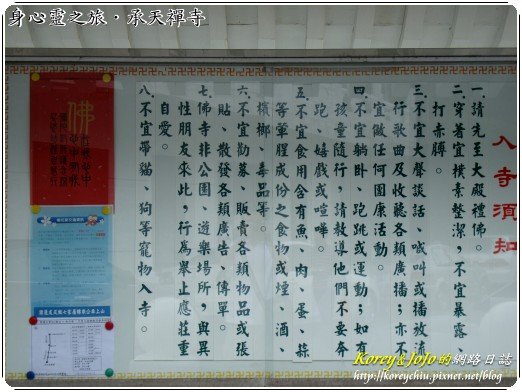 身心靈之旅．承天禪寺
入寺須知
一.請先至大殿禮佛。
二.穿著宜樸素整潔，不宜暴露、
打赤膊。
三.不宜大聲談話、喊叫或播放流
行歌曲及收聽各類廣播；亦不
宜做任何團康活動。
四.不宜躺卧、跑跳或運動；如有
孩童隨行，請教導他們不要奔
跑、嬉戲或喧嘩。
五.不宜食用含有魚、肉、蛋、蒜
等葷腥成份之食物或煙、酒、
檳榔、毒品等。
六.不宜勸募、販賣各類物品或張
貼、散發各類廣告、傳單。
七.佛寺非公園、遊樂場所，與異
性朋友來此，行為舉止應莊重
自愛。
八.不宜帶貓、狗等寵物入寺。
佛
Korey & JoJo 的網路日誌
http://koreychiu.pixnet.net/blog